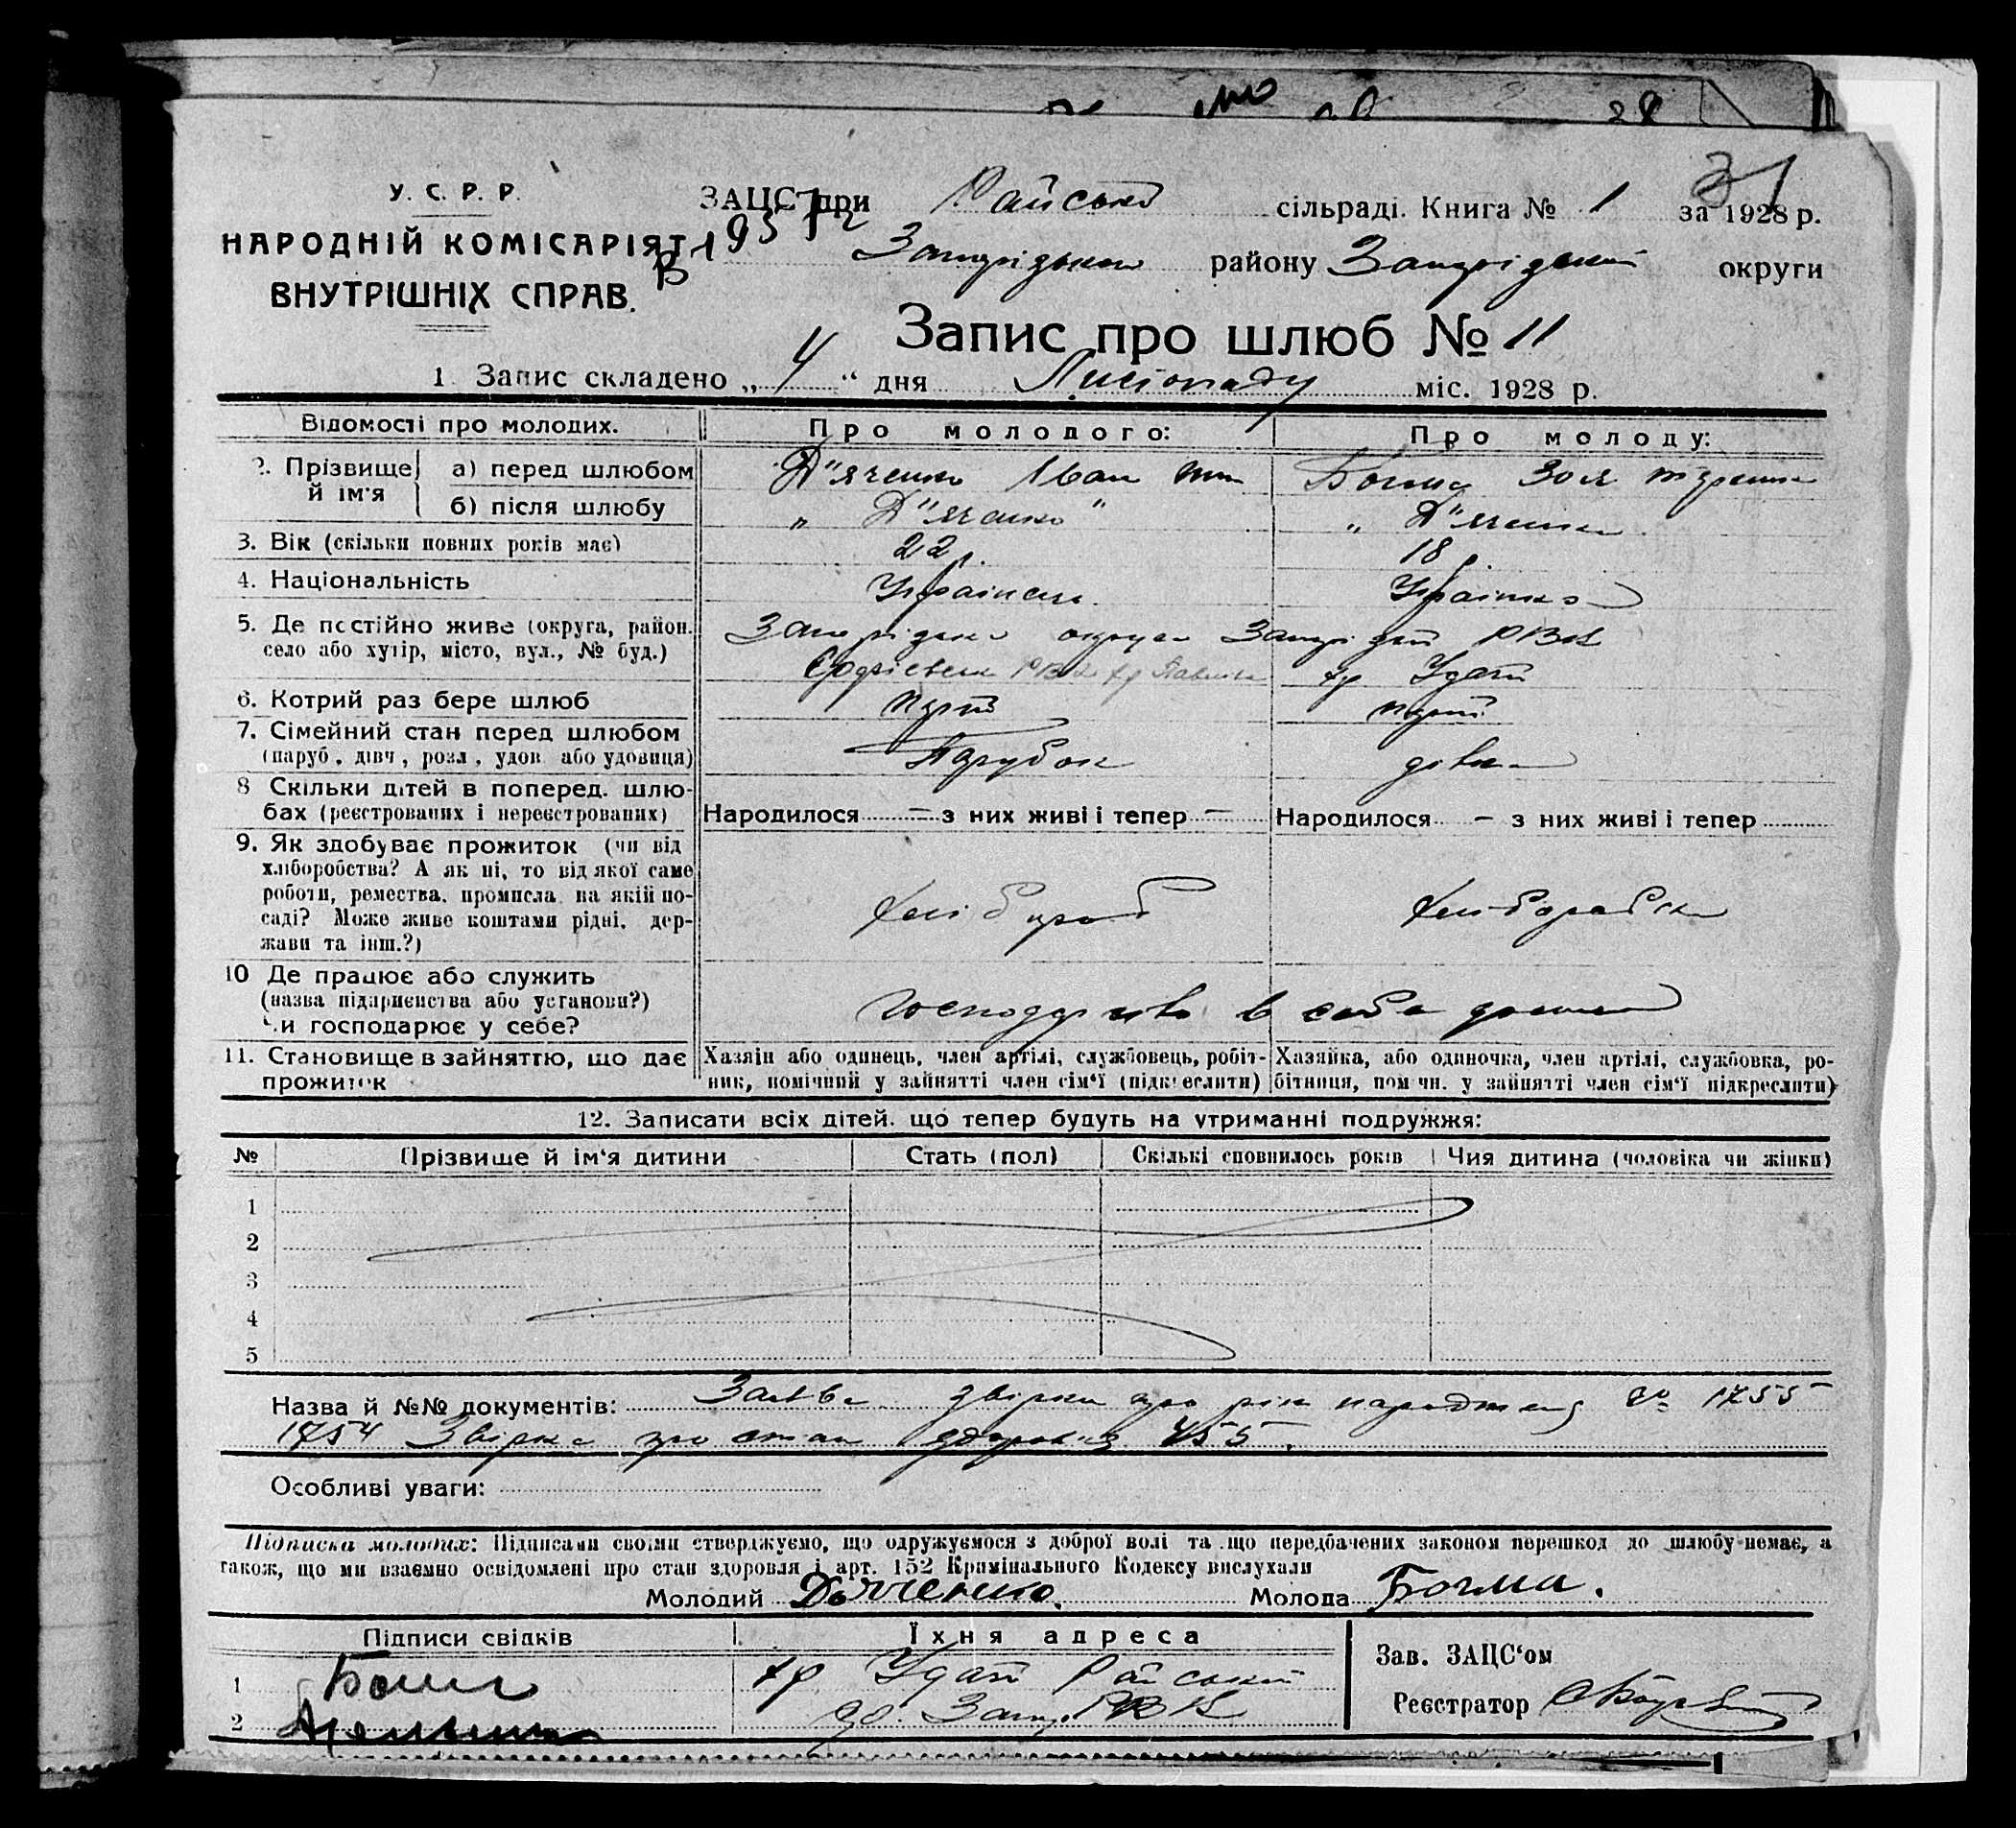 31
У. С. Р. Р.
НАРОДНІЙ КОМІСАРІЯТ
ВНУТРІШНІХ СПРАВ.
ЗАЦС при Райській сільраді. Книга № 1 за 1928 р.
району округи
Запис про шлюб № 11
1. Запис складено „ 4 “ дня Листопаду міс. 1928 р.
Відомості про молодих. Про молодого: Про молоду:
2. Прізвище й ім'я
а) перед шлюбом Д"яченко Іван Зоя
б) після шлюбу „ Д"яченко " „ Д"яченко
3. Вік (скільки повних років має) 22 р. 18 р.
4. Національність Українець Українка
5. Де постійно живе (округа, район. округа РВК
село або хутір, місто, вул., № буд.) РВК хр хр Удат
6. Котрий раз бере шлюб
7. Сімейний стан перед шлюбом Парубок дівка
(паруб., дівч., розл., удов. або удовиця)
8 Скільки дітей в поперед. шлю-
бах (реєстрованих і нереєстрованих) Народилося — з них живі і тепер — Народилося — з них живі і тепер
9. Як здобуває прожиток (чи від
хліборобства? А як ні, то від якої саме
роботи, ремества, промисла, на якій по-
саді? Може живе коштами рідні, дер-
жави та інш.?)
хлібороб хліборобка
10 Де працює або служить
(назва підприємства або установи?)
Чи господарює у себе?
в себе дома
11. Становище в зайняттю, що дає
прожиток
Хазяїн або одинець, член артілі, службовець, робіт-
ник, помічний у зайнятті член сім'ї (підкреслити)
Хазяйка, або одиночка, член артілі, службовка, ро-
бітниця, пом чн. у зайнятті член сім'ї підкреслити)
12. Записати всіх дітей, що тепер будуть на утриманні подружжя:
№ Прізвище й ім'я дитини Стать (пол) Скількі сповнилось років Чия дитина (чоловіка чи жінки)
1
2
3
4
5
Назва й №№ документів: Заява звірка про рік № 1755
1754 Звірка про стан здоровля 455.
Особливі уваги:
Підписка молодих: Підписами своїми стверджуємо, що одружуємося з доброї волі та що передбачених законом перешкод до шлюбу немає, а
також, що ми взаємно освідомлені про стан здоровля і арт. 152 Кримінального Кодексу вислухали
Молодий Дьяченко. Молода Бочма.
Підписи свідків Їхня адреса
1 хр Удат Райський
2 РВК
Зав. ЗАЦС'ом
Реєстратор